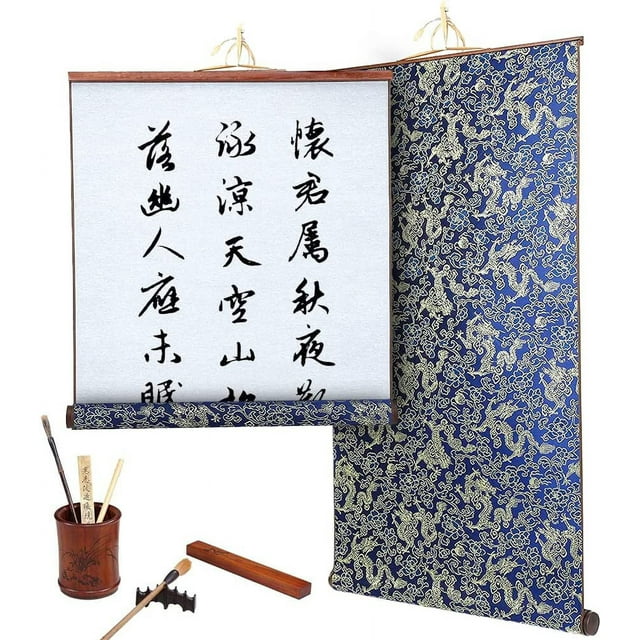 懷君屬秋夜
詠涼天空山
落幽人應未眠